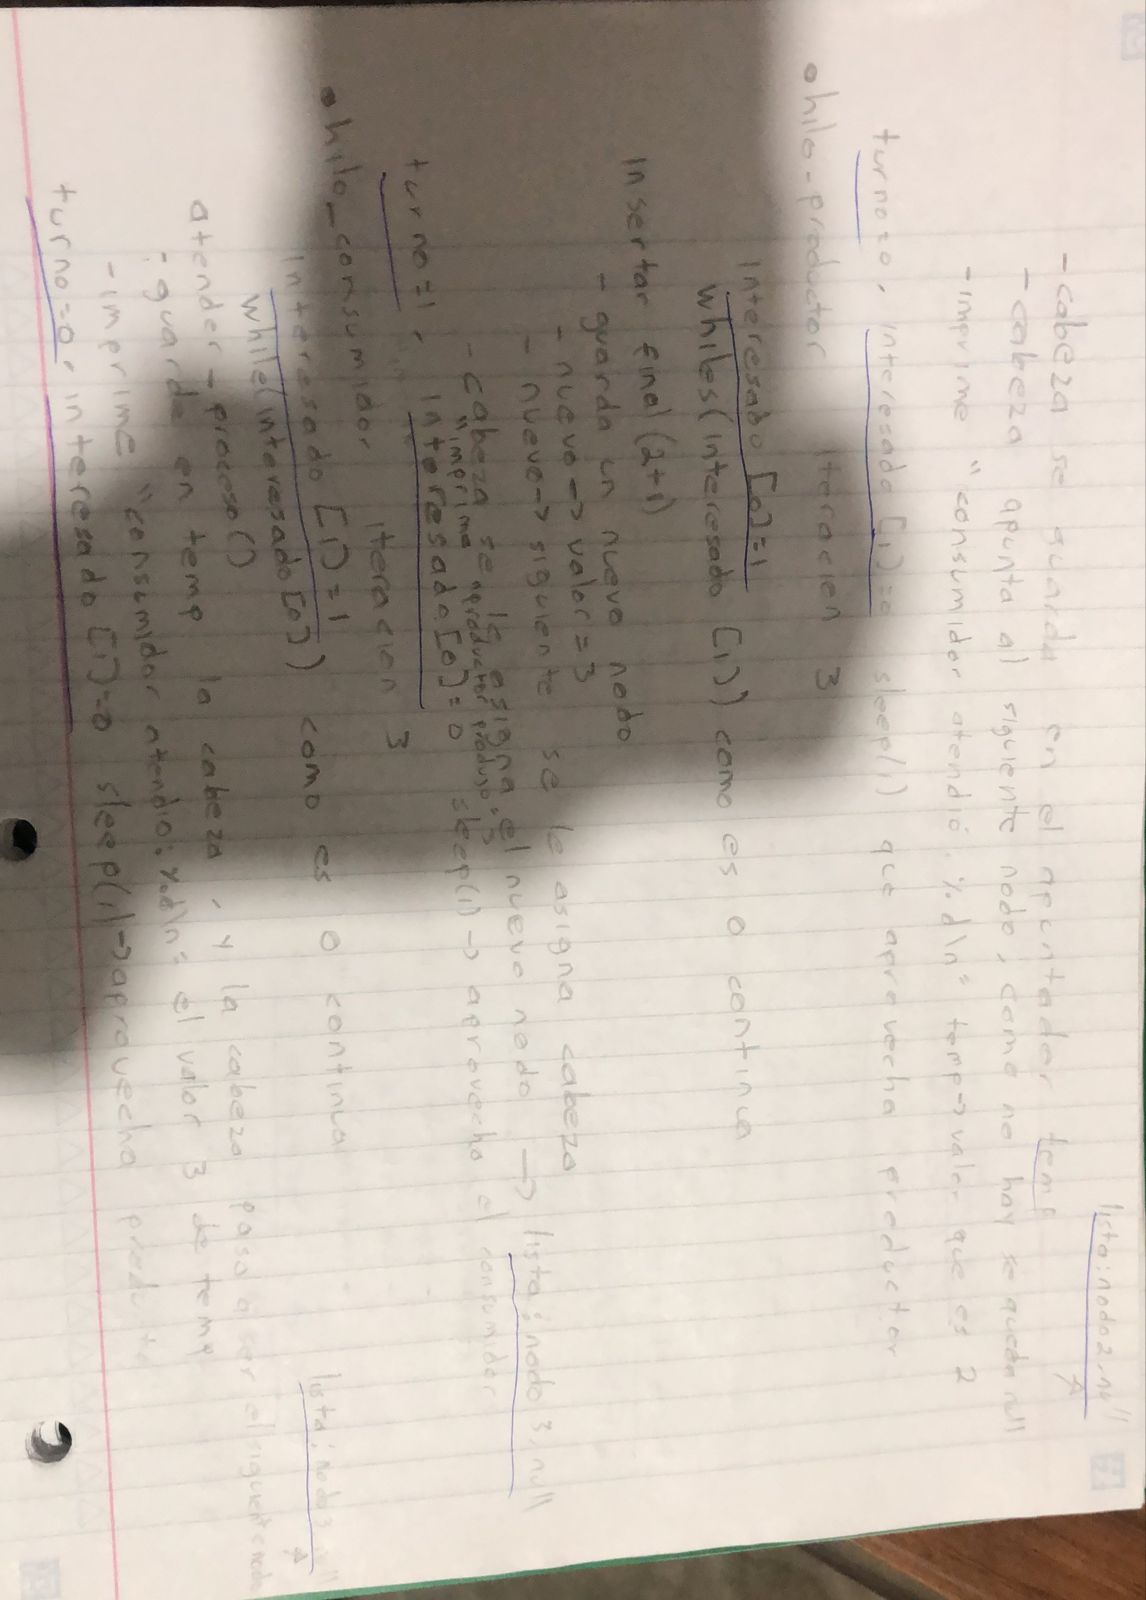 lista: nodo 2, null
- cabeza se guarda en el apuntador temp
- cabeza apunta al siguiente nodo, como no hay se queda null
- imprime "consumidor atendió: %d\n = temp->valor que es 2
turno=0, interesado [1]=0 sleep(1) que aprovecha productor
• hilo_productor iteracion 3
interesado [0]=1
whiles(interesado [1]) como es 0 continua
Insertar final (2+1)
- guarda un nuevo nodo
- nuevo -> valor = 3
- nuevo -> siguiente se le asigna cabeza
- cabeza se le asigna el nuevo nodo -> lista: nodo 3, null
"imprime productor produjo: 3
turno=1, interesado [0]=0 sleep(1) -> aprovecho el consumidor
• hilo_consumidor iteracion 3
interesado [1]=1
while(interesado [0]) como es 0 continua
lista: nodo 3
atender_proceso()
- guarda en temp la cabeza, y la cabeza pasa a ser el siguiente nodo
- imprime "consumidor atendio: %d\n = el valor 3 de temp
turno=0, interesado [1]=0 sleep(1) -> aprovecha